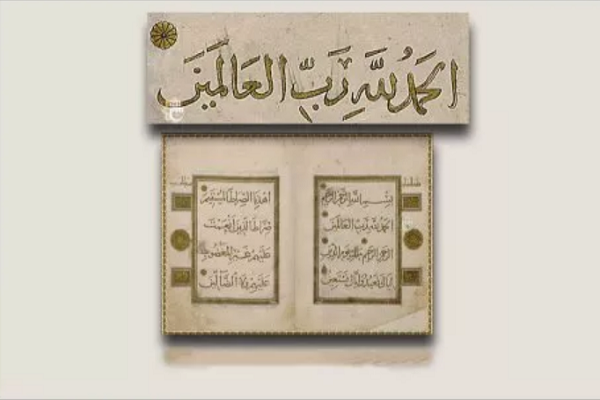 الحَمْدُ لِلَّهِ رَبِّ العَالَمِينَ
بسم الله الرحمن الرحيم
الحمد لله رب العالمين
الرحمن الرحيم ملك يوم الدين
اياك نعبد واياك نستعين
اهدنا الصراط المستقيم
صراط الذين انعمت
عليهم غير المغضوب
عليهم ولا الضالين